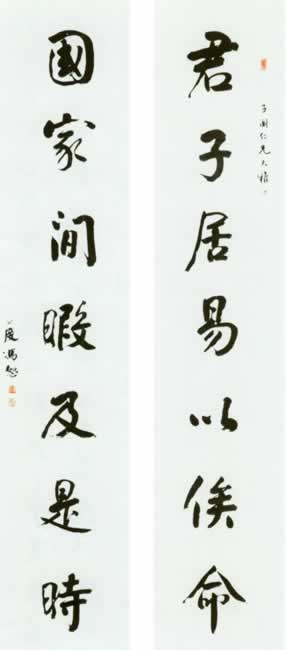 子 仁兄大雅
君子居易以俟命
國家閒暇及是時
公度馮恕